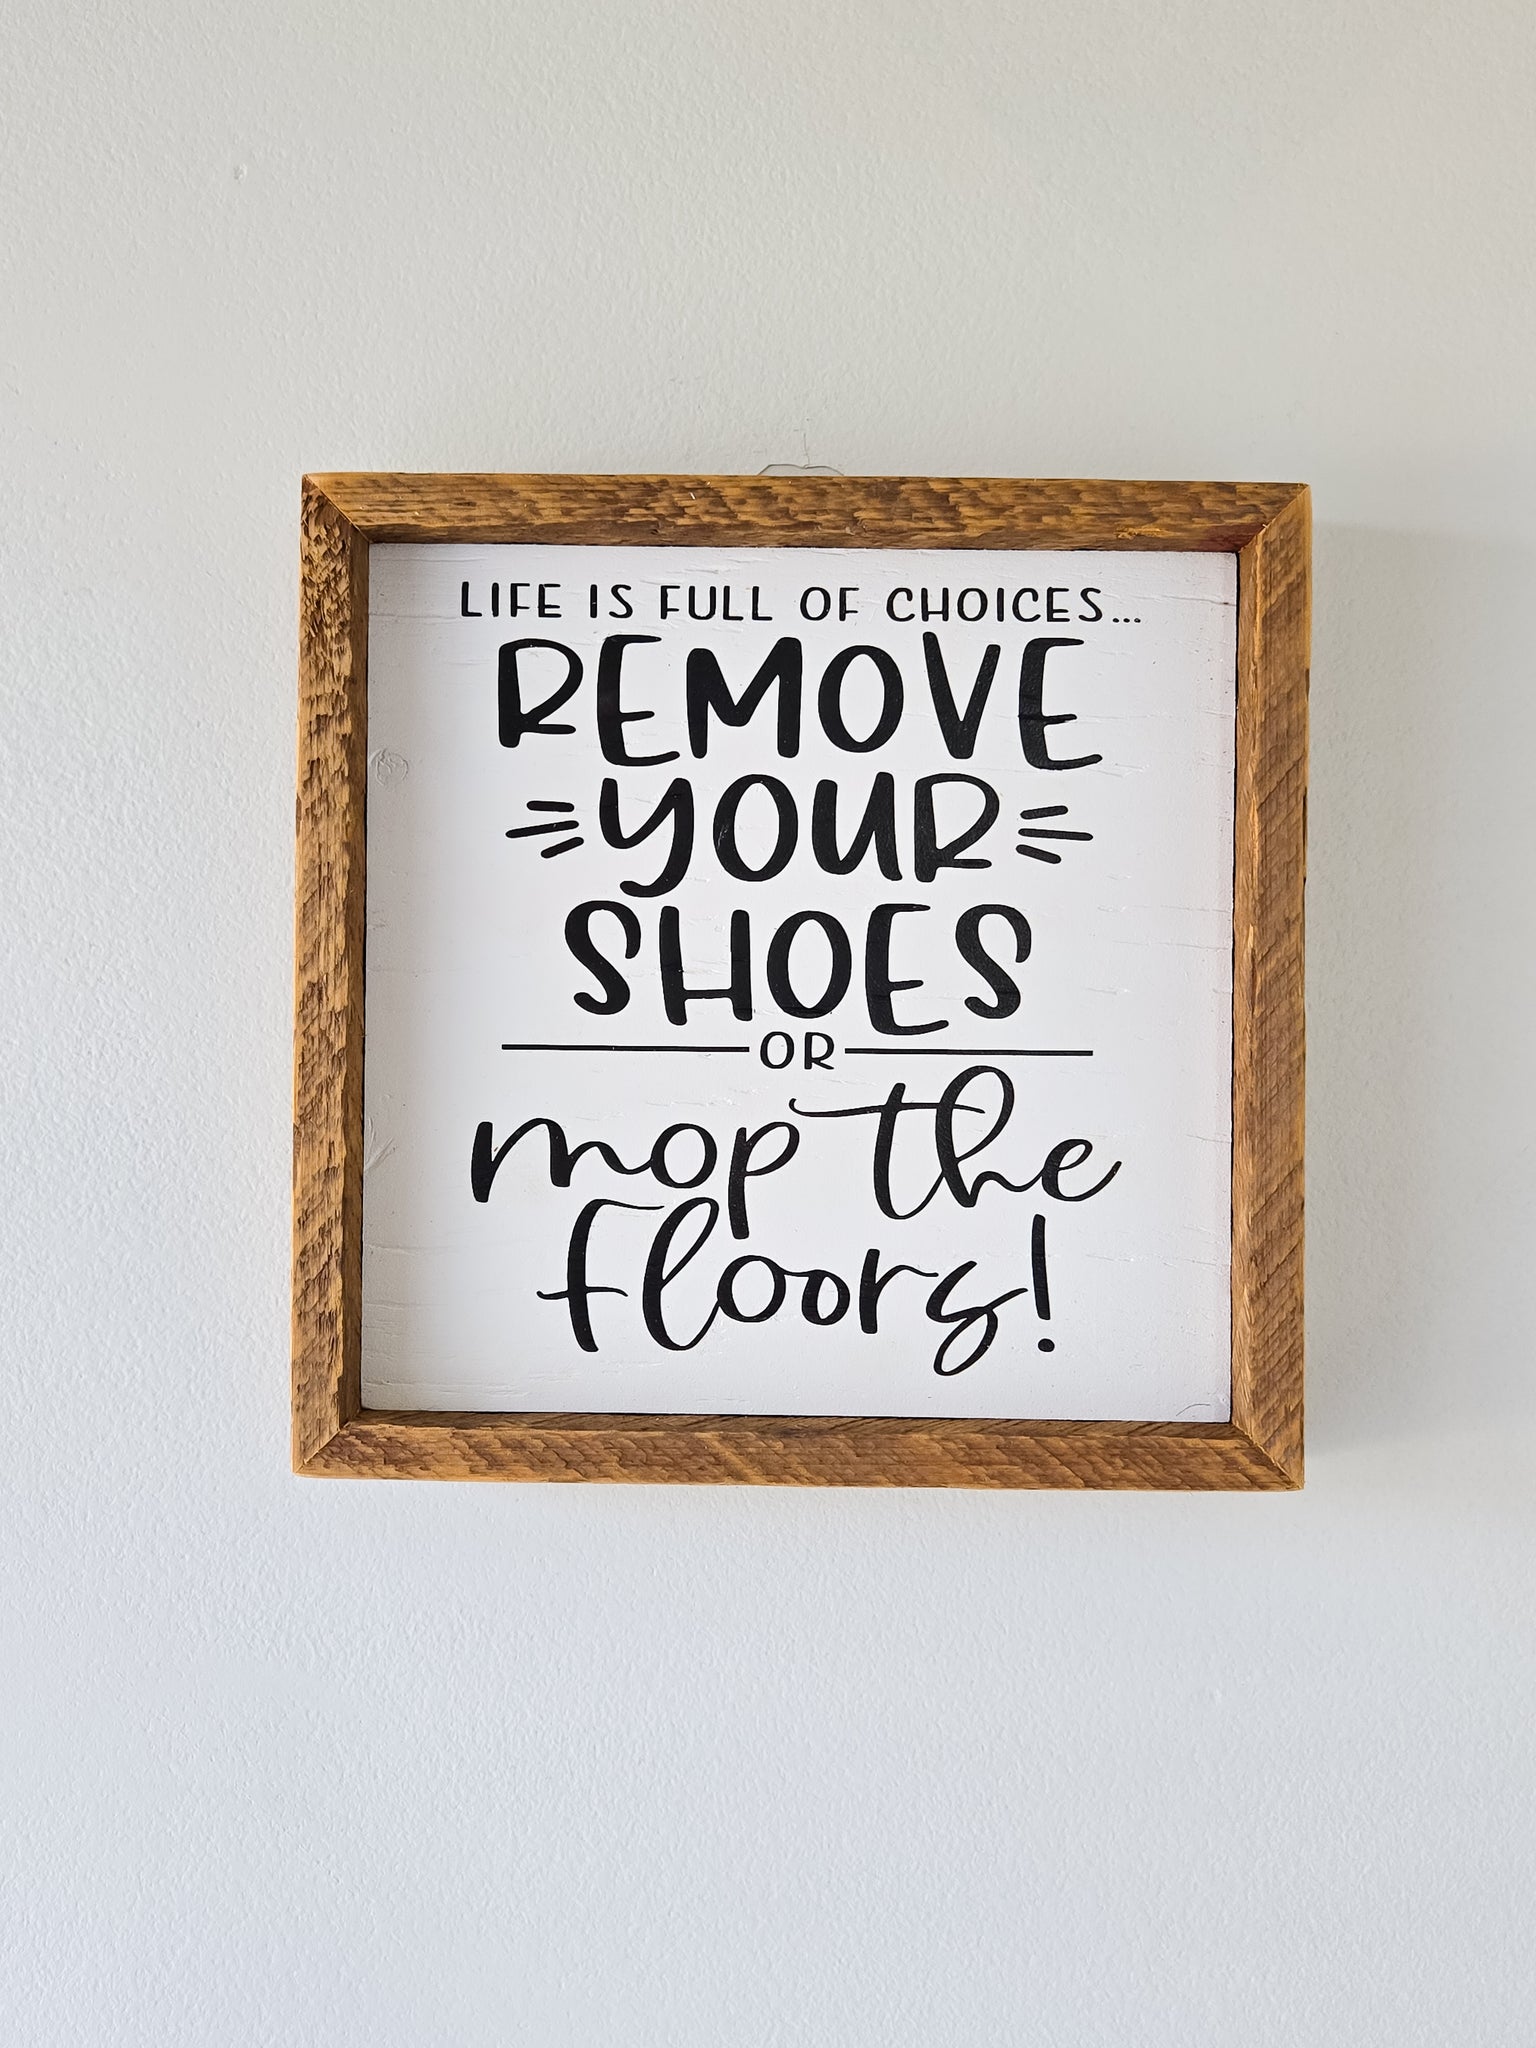 LIFE IS FULL OF CHOICES...
REMOVE
YOUR
SHOES
OR
mop the
floors!